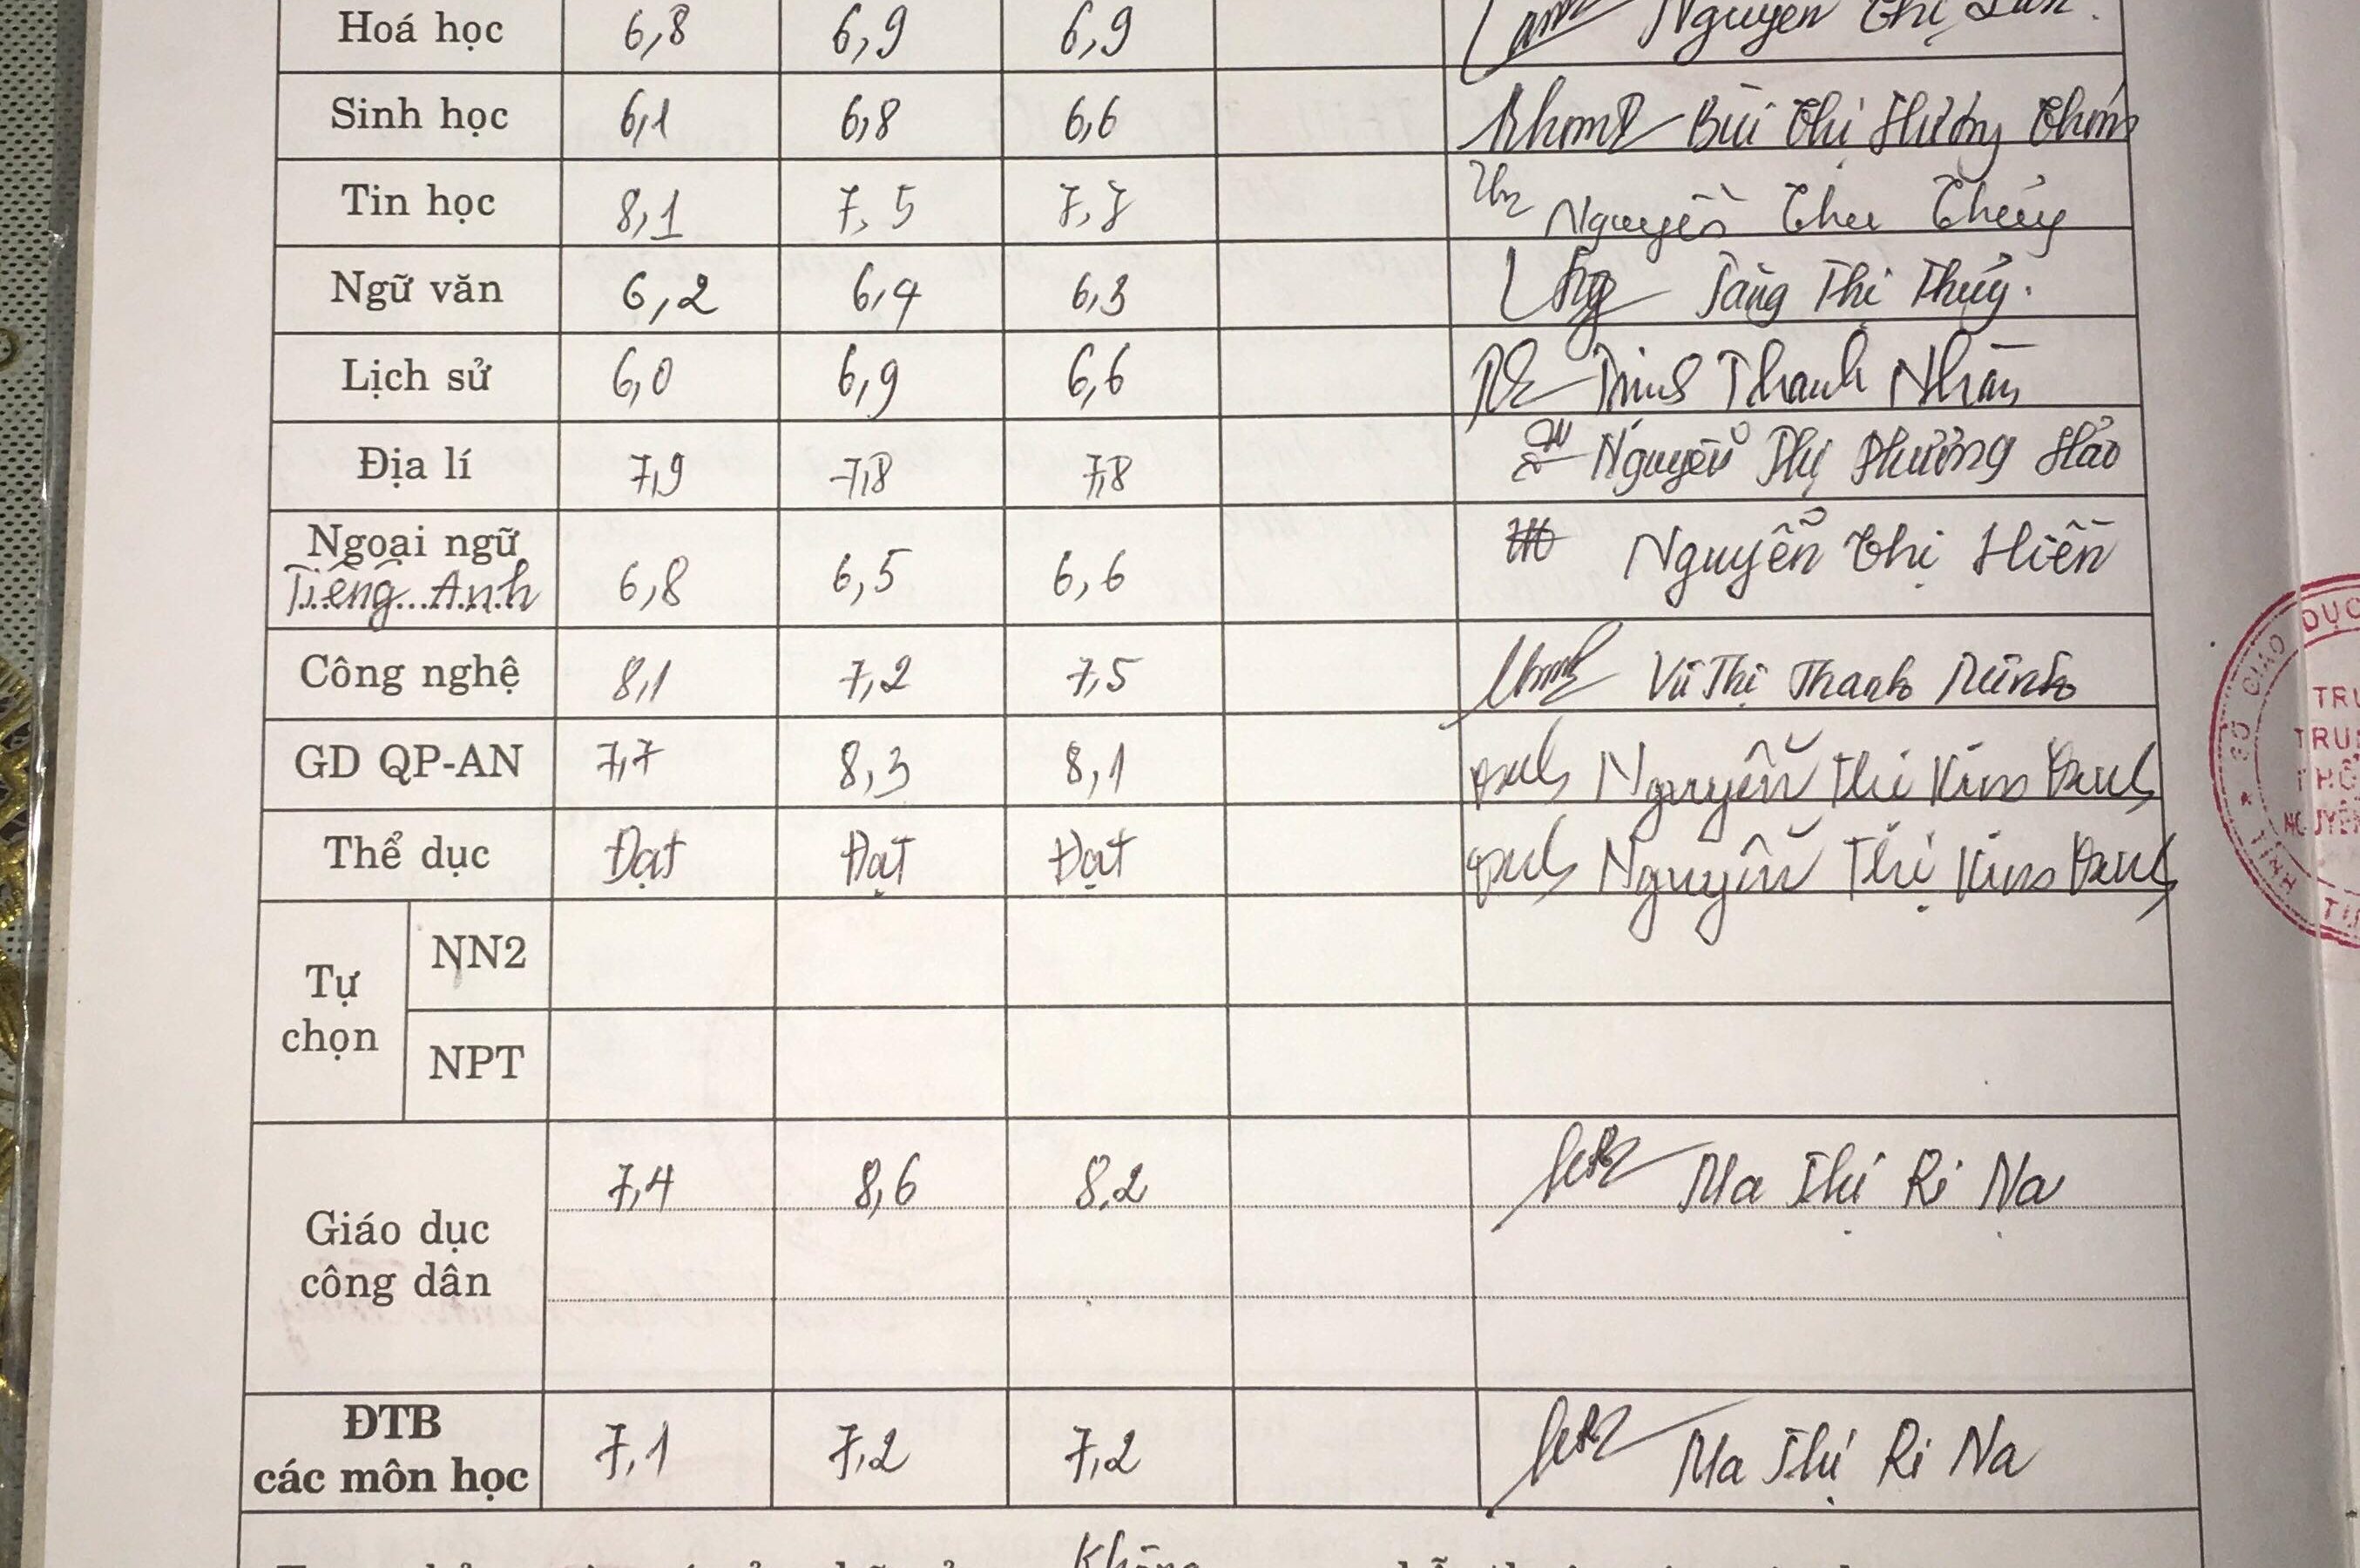 Hoá học 6,8 6,9 6,9 Nguyễn Thị Lan.
Sinh học 6,1 6,8 6,6 Bùi Thị Hương Thơm
Tin học 8,1 7,5 7,7 Nguyễn Thu Thủy
Ngữ văn 6,2 6,4 6,3 Tăng Thị Thủy.
Lịch sử 6,0 6,9 6,6 Trịnh Thanh Nhàn
Địa lí 7,9 7,8 7,8 Nguyễn Thị Phương Hảo
Ngoại ngữ
Tiếng Anh 6,8 6,5 6,6 Nguyễn Thị Hiền
Công nghệ 8,1 7,2 7,5 Vũ Thị Thanh
GD QP-AN 7,7 8,3 8,1 Nguyễn Thị Kim
Thể dục Đạt Đạt Đạt Nguyễn Thị Kim
Tự chọn
NN2
NPT
Giáo dục
công dân 7,4 8,6 8,2 Ma Thị Ri Na
ĐTB
các môn học 7,1 7,2 7,2 Ma Thị Ri Na
Không
SỞ GIÁO DỤC
TỈNH